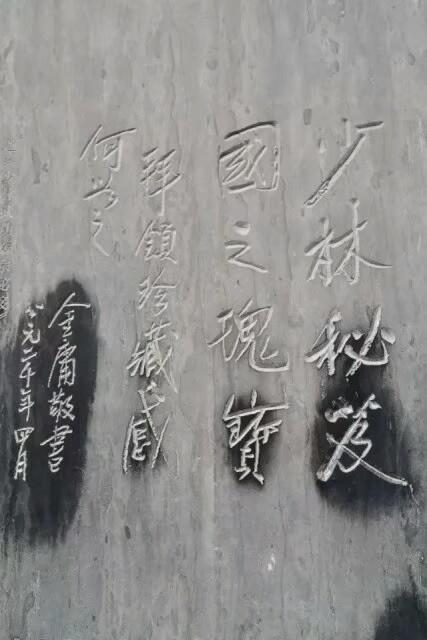 少林秘笈
國之瑰寶
拜領珍藏感
何如之
金庸敬書
公元二千年四月